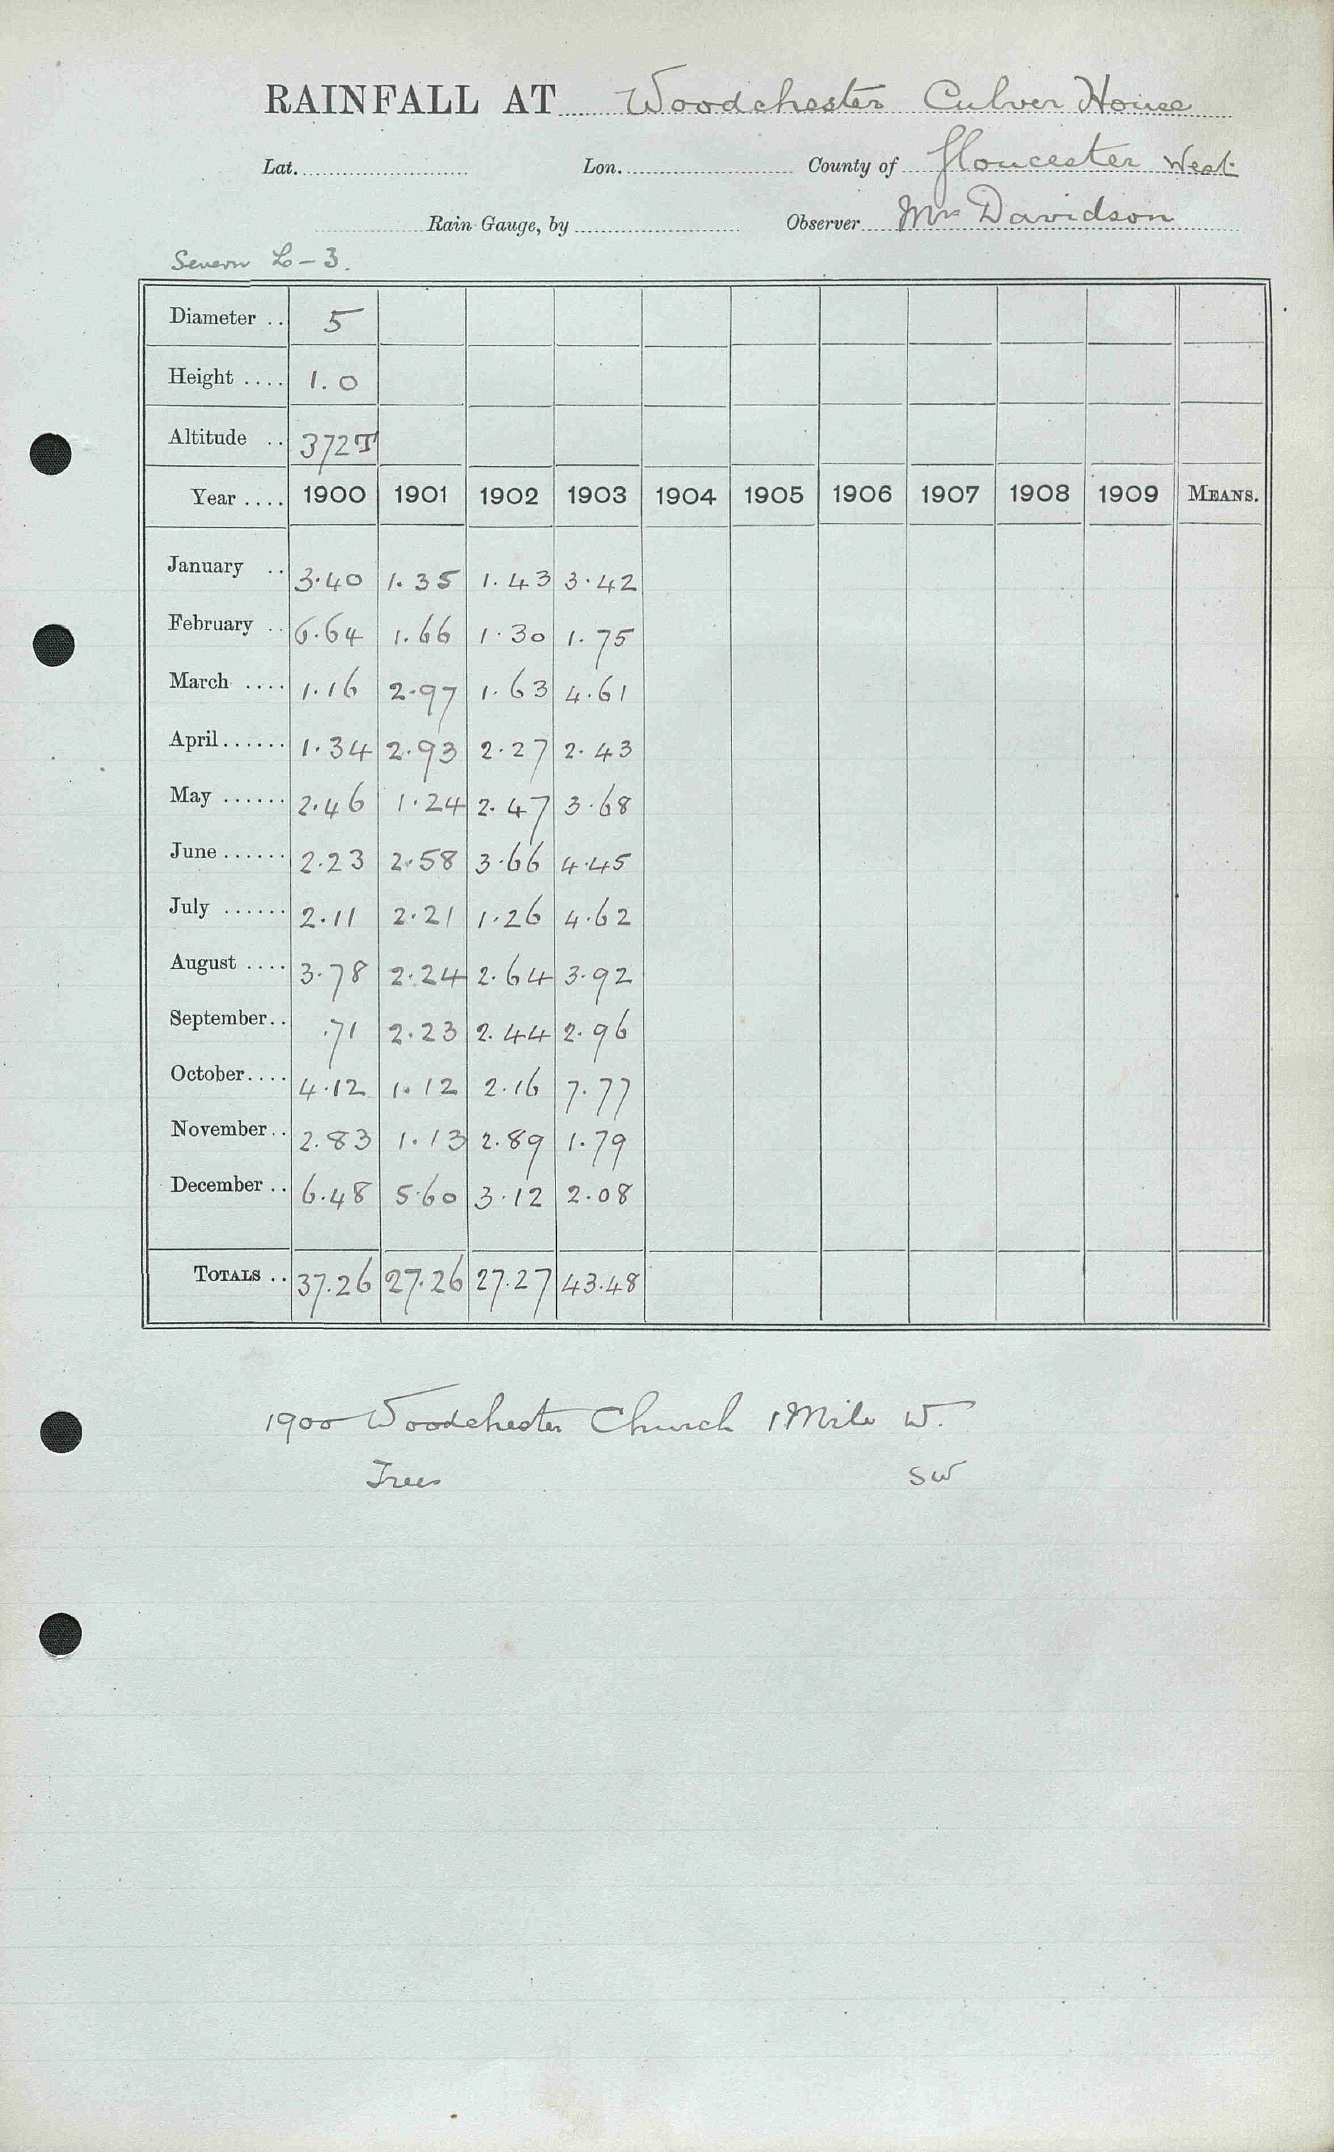 RAINFALL AT Woodchester Culver House
Lat. Lon. County of Gloucester West
Rain Gauge, by Observer Mrs Davidson
Severn L-3.
Diameter .. 5
Height .... 1.0
Altitude .. 372T
Year .... 1900 1901 1902 1903 1904 1905 1906 1907 1908 1909 MEANS.
January .. 3.40 1.35 1.43 3.42
February .. 6.64 1.66 1.30 1.75
March .... 1.16 2.97 1.63 4.61
April ...... 1.34 2.93 2.27 2.43
May ...... 2.46 1.24 2.47 3.68
June ...... 2.23 2.58 3.66 4.45
July ...... 2.11 2.21 1.26 4.62
August .... 3.78 2.24 2.64 3.92
September .. .71 2.23 2.44 2.96
October .... 4.12 1.12 2.16 7.77
November .. 2.83 1.13 2.89 1.79
December .. 6.48 5.60 3.12 2.08
TOTALS .. 37.26 27.26 27.27 43.48
1900 Woodchester Church 1 Mile W.
Trees SW